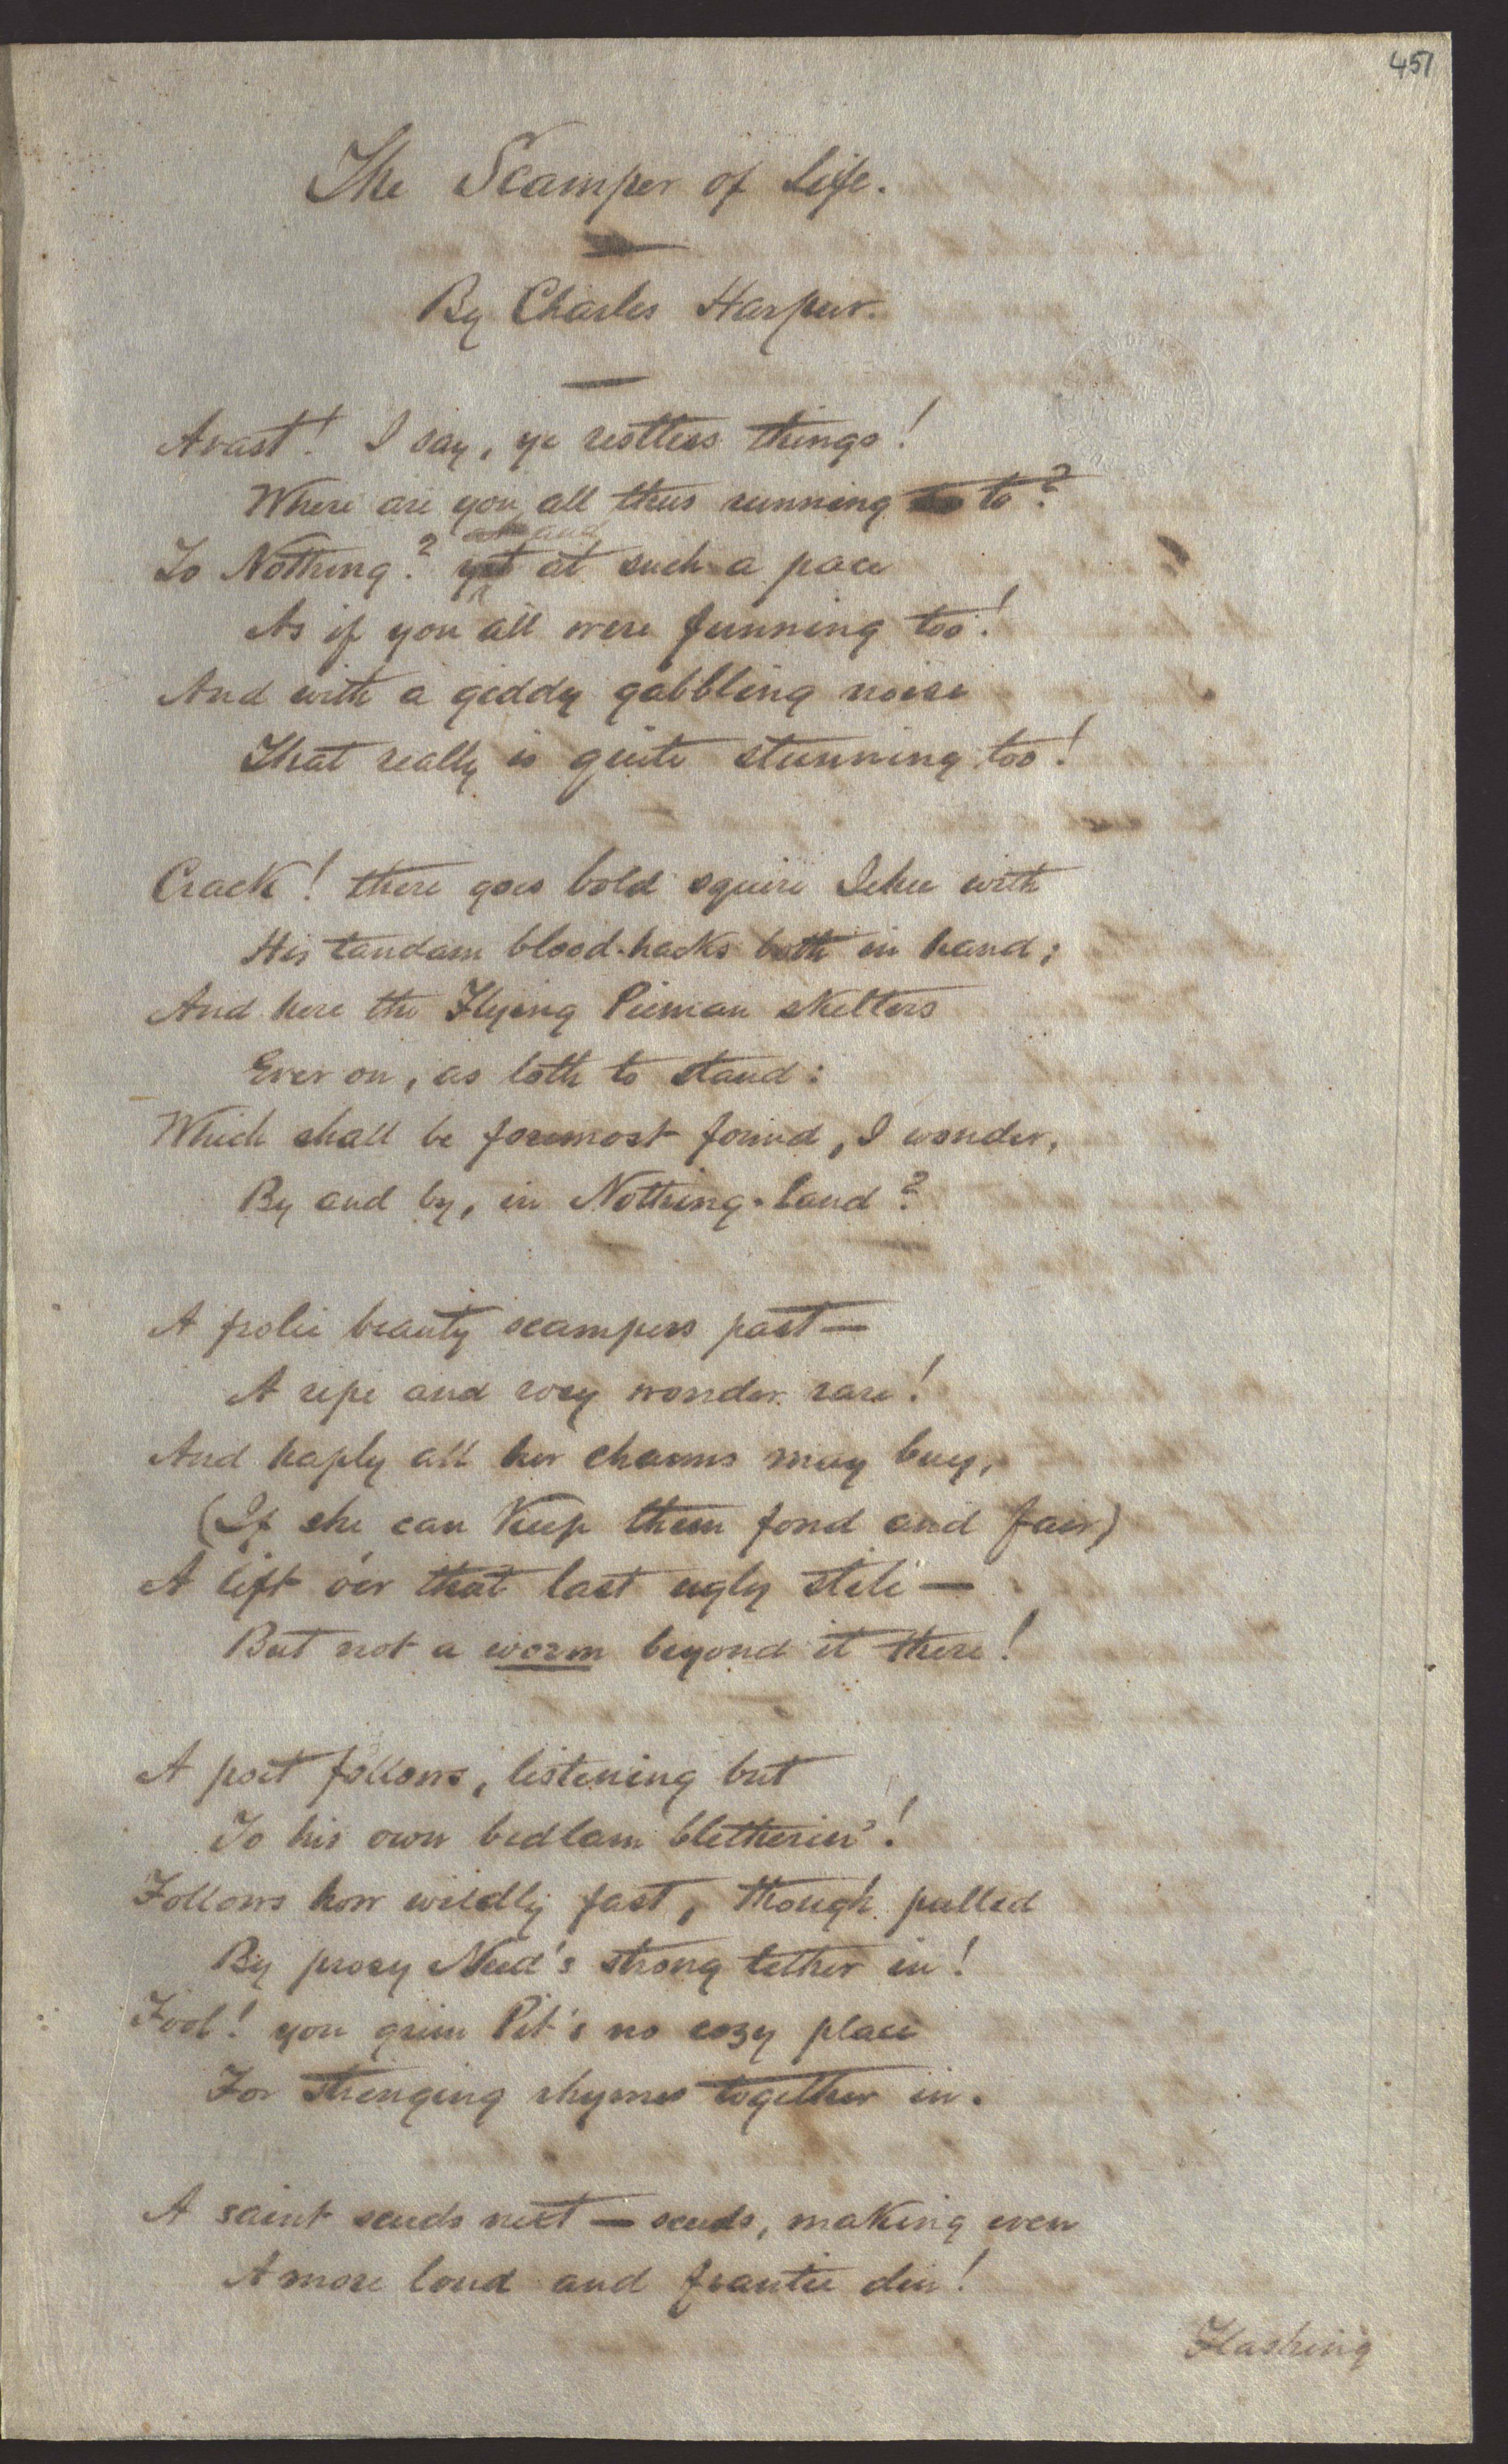 451
The Scamper of Life.
By Charles Harpur.
Avast! I say, ye restless things!
Where are you all thus running to?
and
To Nothing? yet at such a pace
As if you all were funning too!
And with a giddy gabbling noise
That really is quite stunning too!
Crack! there goes bold squire Jehu with
His tandam blood-hacks both in hand;
And here the Flying Pieman skelters
Ever on, as loth to stand:
Which shall be foremost found, I wonder,
By and by, in Nothing-land?
A frolic beauty scampers past—
A ripe and rosy wonder rare!
And haply all her charms may buy,
(If she can keep them fond and fair)
A lift o'er that last ugly stile—
But not a worm beyond it there!
A poet follows, listening but
To his own bedlam bletherin'!
Follows how wildly fast, though pulled
By prosy Need's strong tether in!
Fool! yon grim Pit's no cozy place
For stringing rhymes together in.
A saint scuds next—scuds, making even
A more loud and frantic din!
Flashing